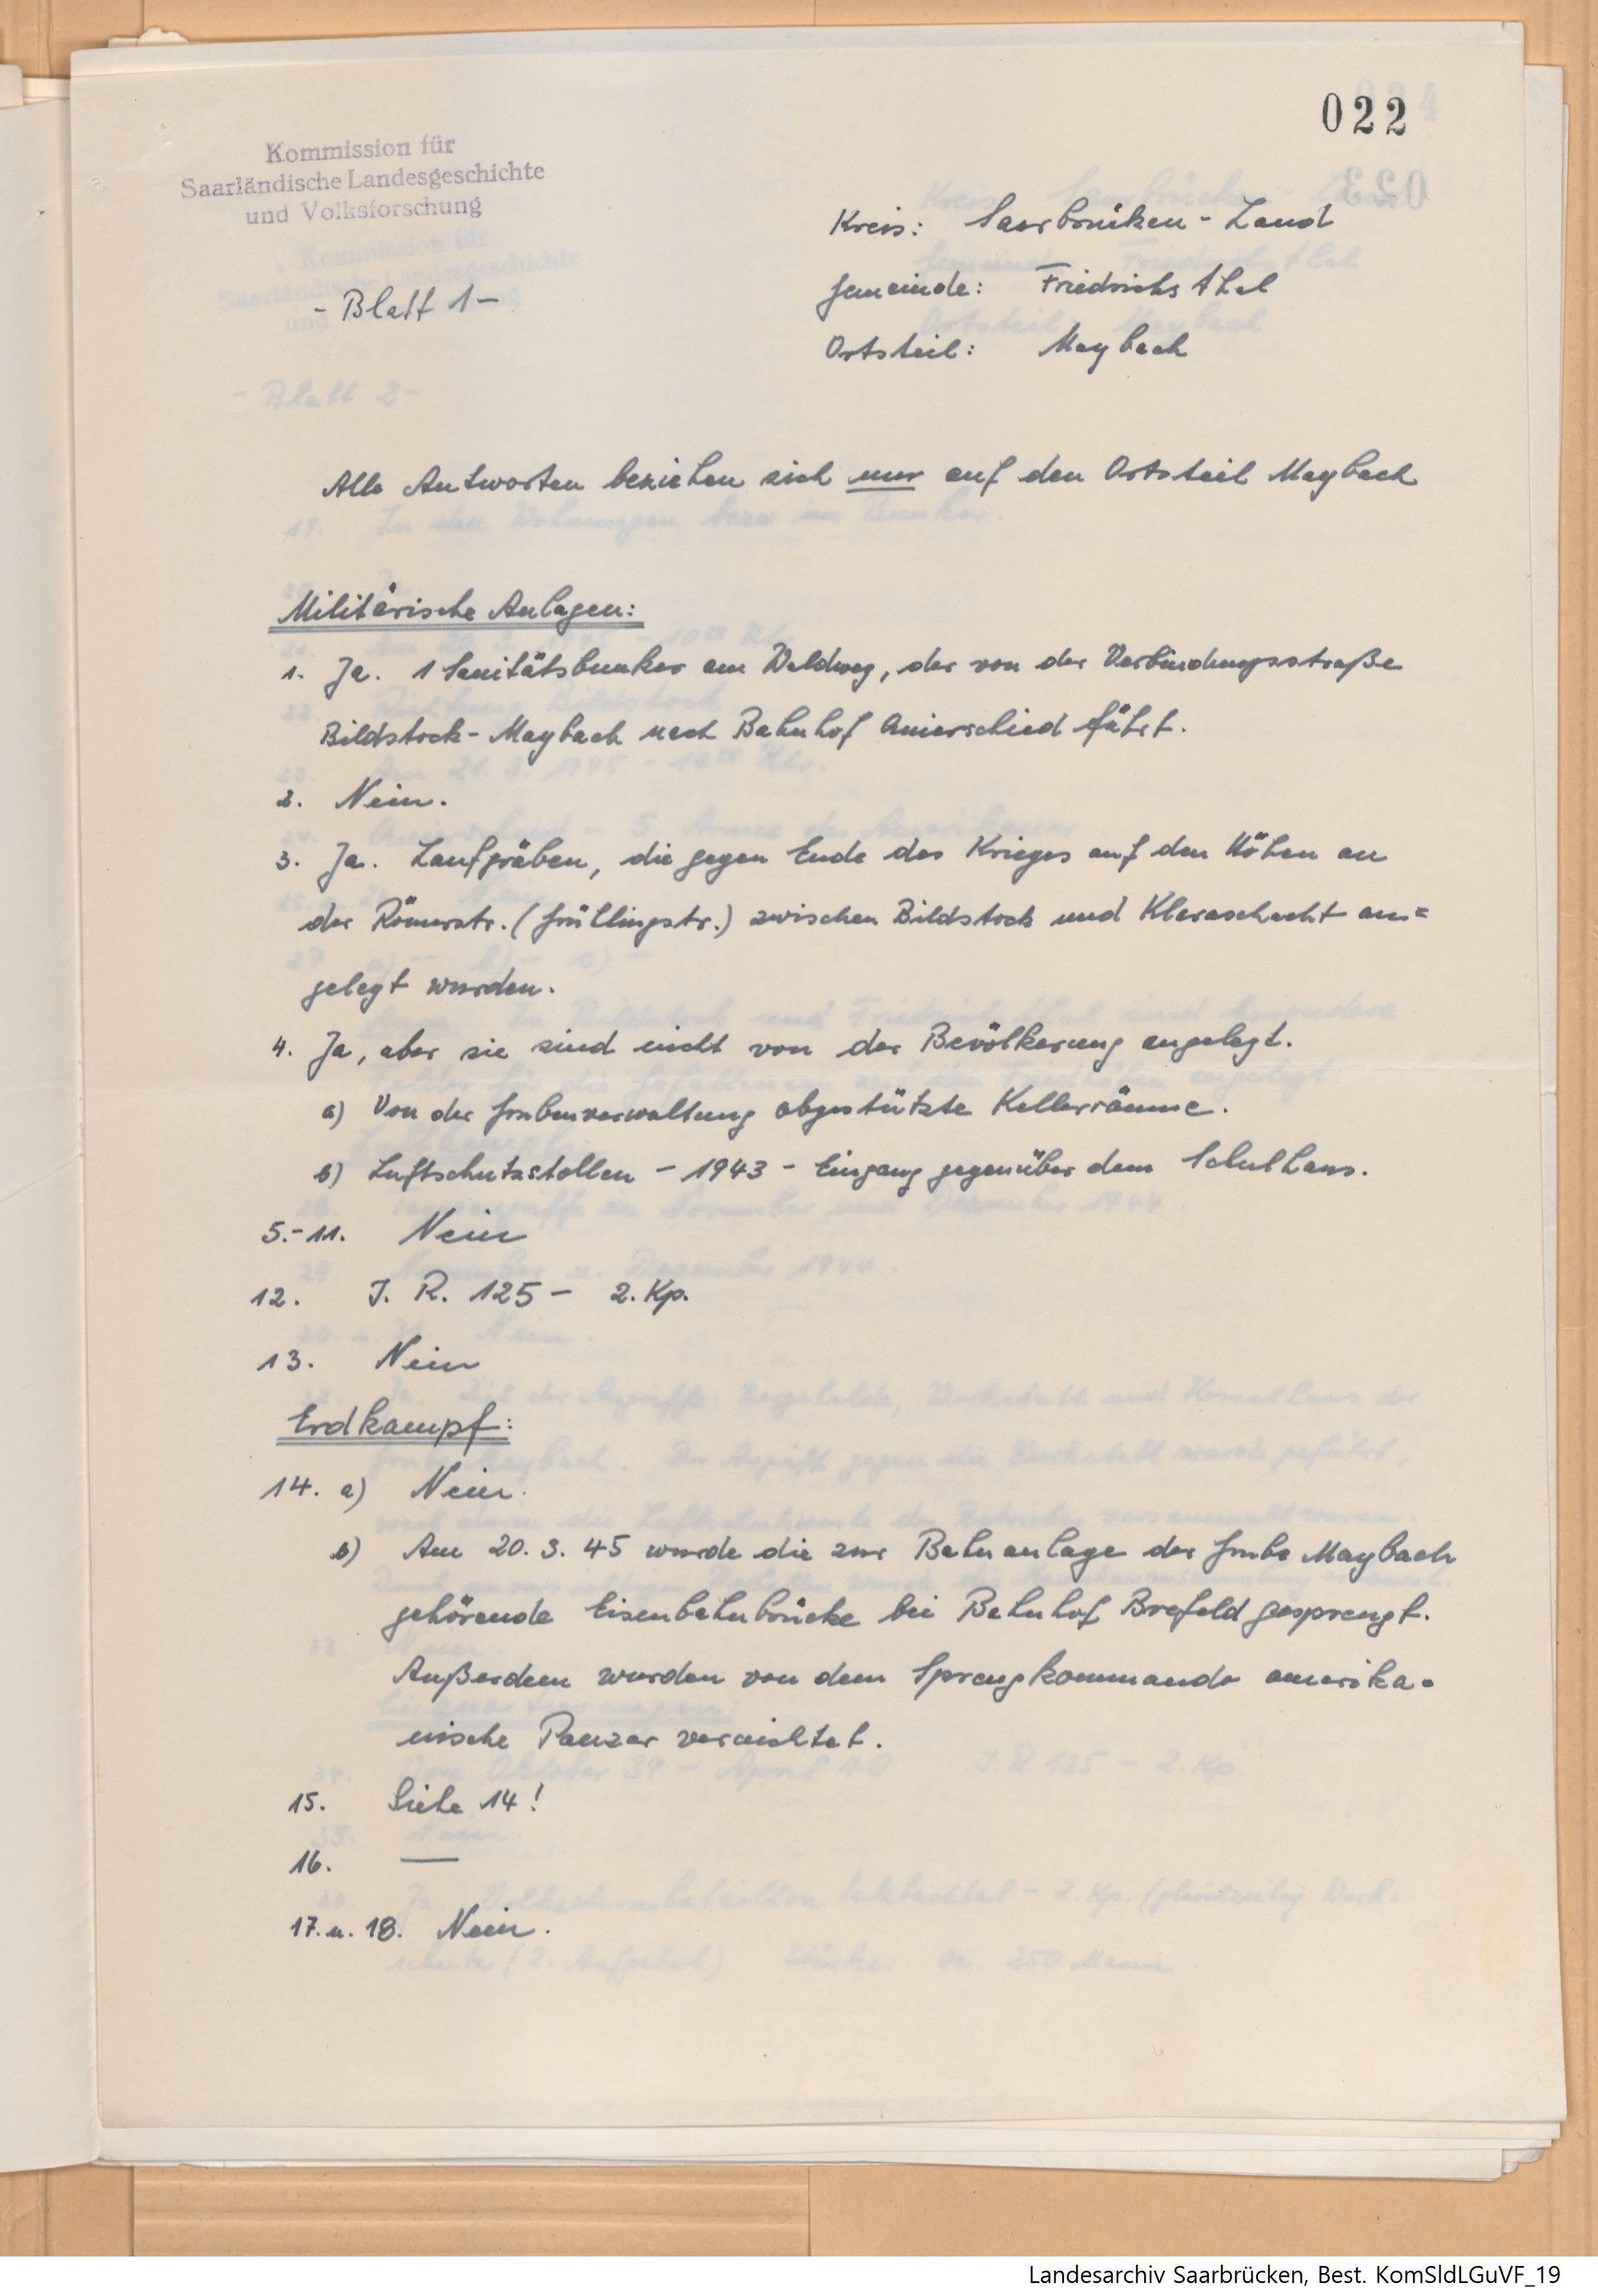 022
Kommission für
Saarländische Landesgeschichte
und Volksforschung
- Blatt 1 -
Kreis: Saarbrücken - Land
Gemeinde: Friedrichsthal
Ortsteil: Maybach
Alle Antworten beziehen sich nur auf den Ortsteil Maybach
Militärische Anlagen:
1. Ja. 1 Sanitätsbunker am Waldweg, der von der Verbindungsstraße
Bildstock - Maybach nach Bahnhof Quierschied führt.
2. Nein.
3. Ja. Laufgräben, die gegen Ende des Krieges auf den Höhen an
der Römerstr. (Grüllingstr.) zwischen Bildstock und Kleraschacht an=
gelegt wurden.
4. Ja, aber sie sind nicht von der Bevölkerung angelegt.
a) Von der Grubenverwaltung abgestützte Kellerräume.
b) Luftschutzstollen - 1943 - Eingang gegenüber dem Schulhaus.
5.-11. Nein
12. J. R. 125 - 2. Kp.
13. Nein
Erdkampf:
14. a) Nein.
b) Am 20. 3. 45 wurde die zur Bahnanlage der Grube Maybach
gehörende Eisenbahnbrücke bei Bahnhof Brefeld gesprengt.
Außerdem wurden von dem Sprengkommando amerika-
nische Panzer vernichtet.
15. Siehe 14!
16. —
17. u. 18. Nein.
Landesarchiv Saarbrücken, Best. KomSldLGuVF_19